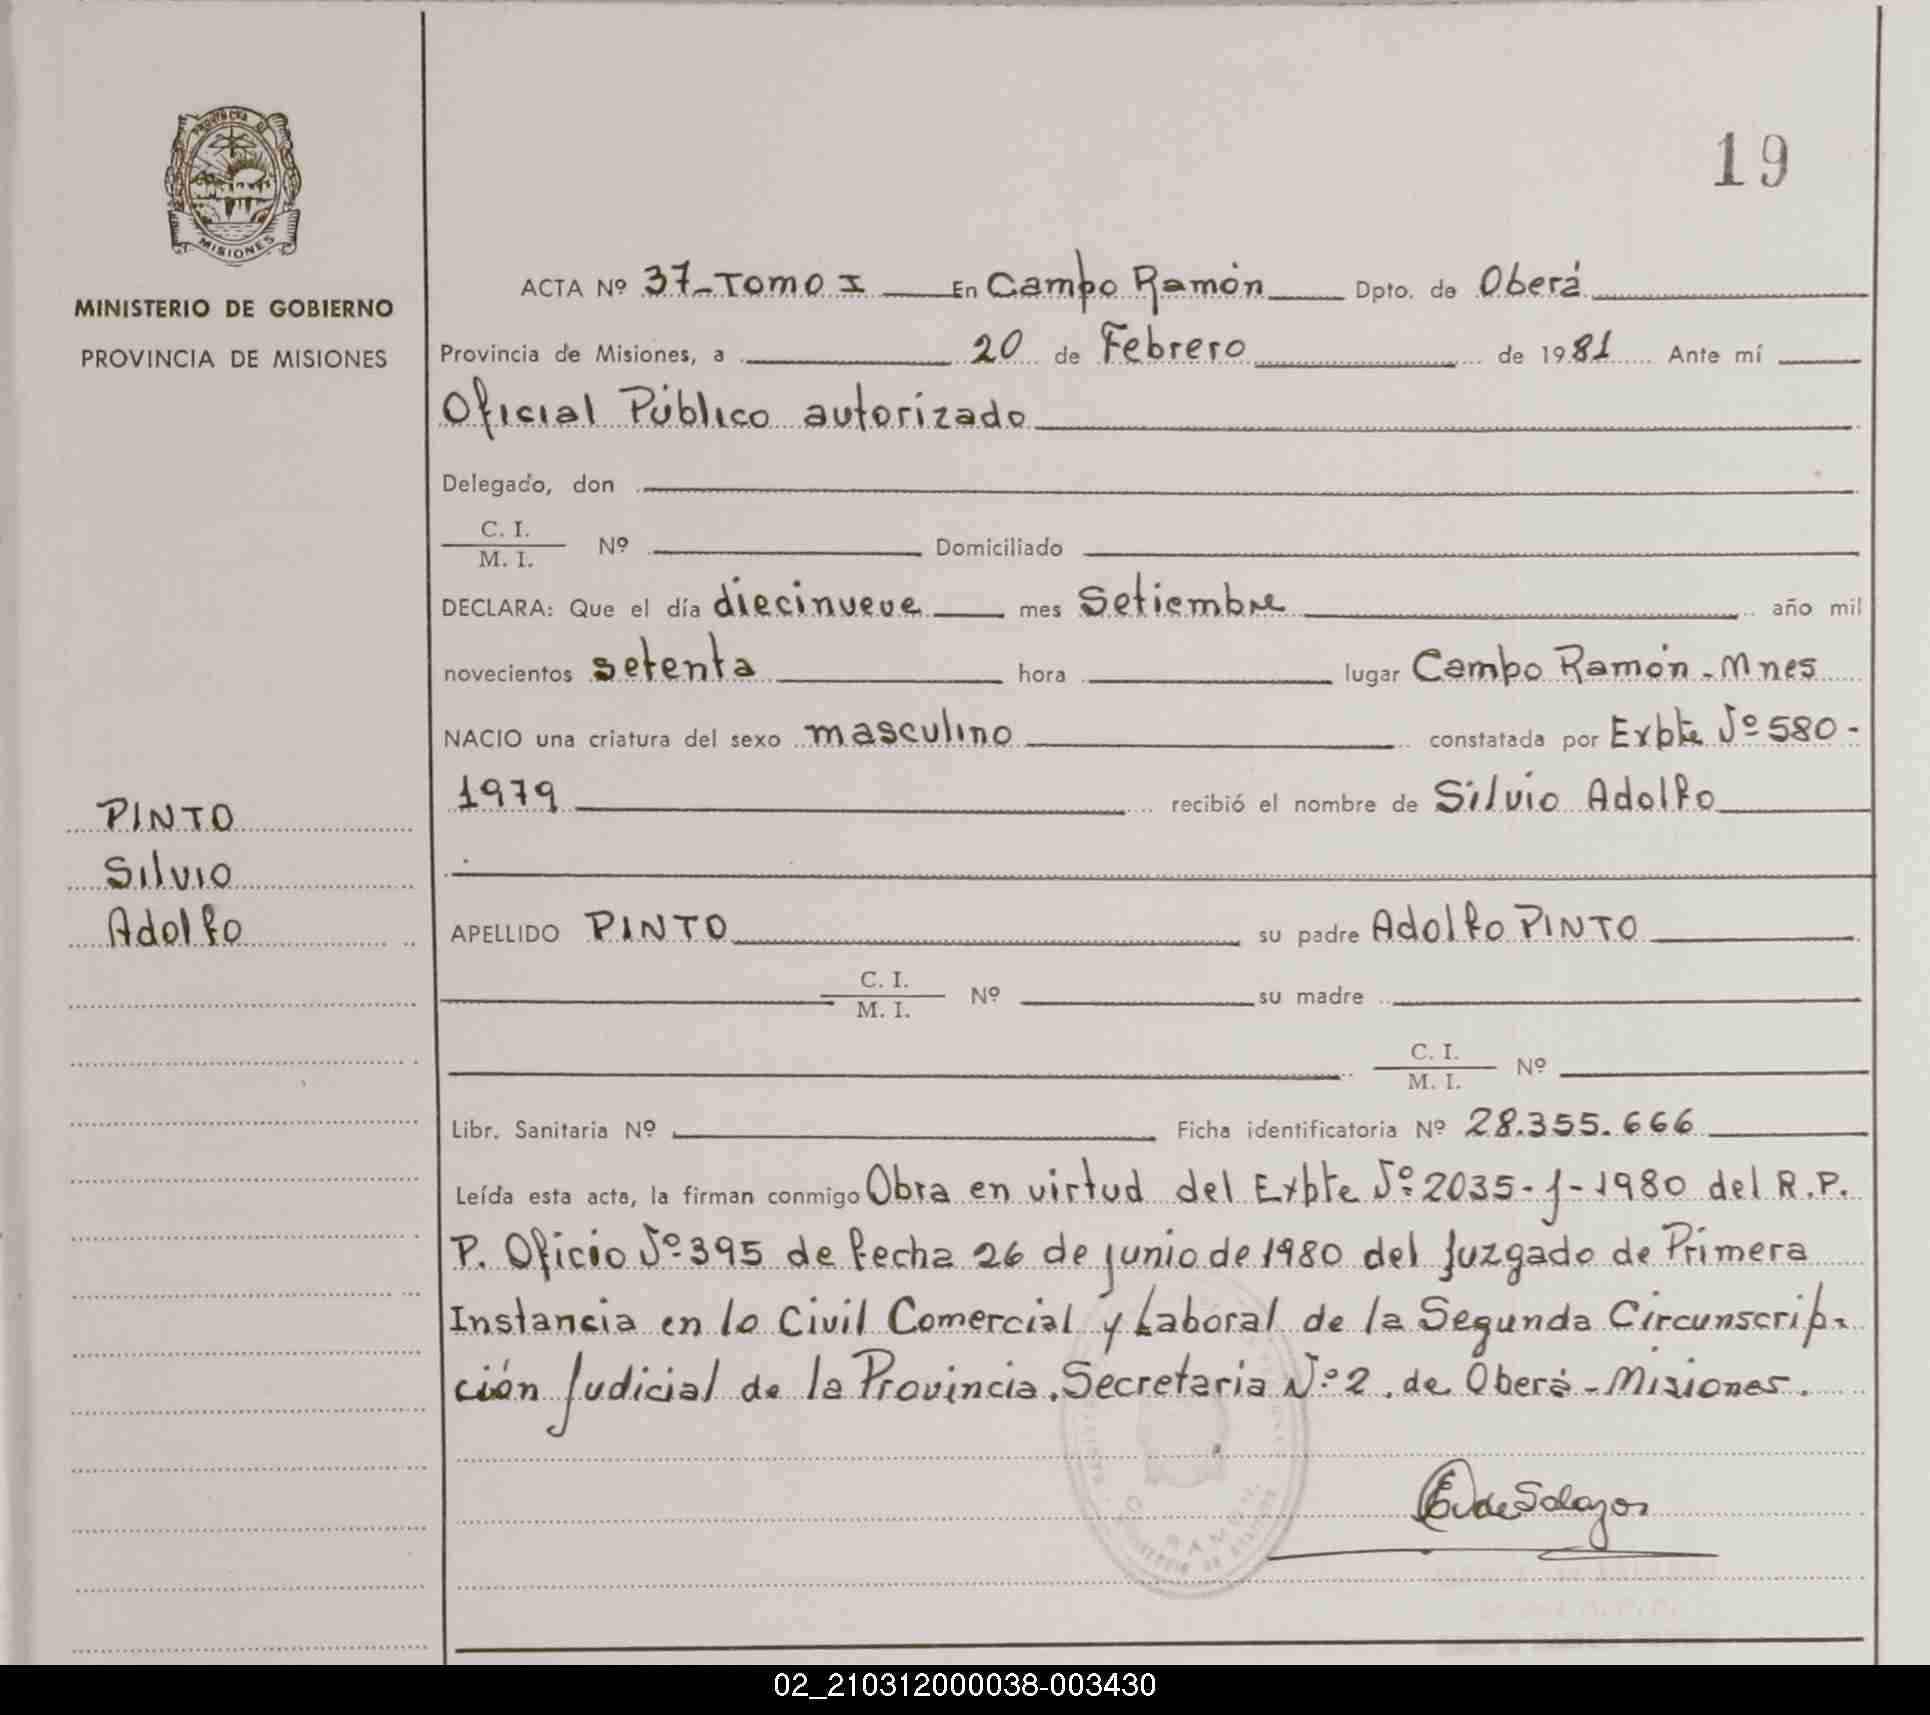 PROVINCIA DE
MISIONES
MINISTERIO DE GOBIERNO
PROVINCIA DE MISIONES
19
ACTA Nº 37-Tomo I En Campo Ramón Dpto. de Oberá
Provincia de Misiones, a 20 de Febrero de 1981 Ante mí
Oficial Público autorizado
Delegado, don
C. I.
M. I. Nº Domiciliado
DECLARA: Que el día diecinueve mes Setiembre año mil
novecientos setenta hora lugar Campo Ramón - Mnes
NACIO una criatura del sexo masculino constatada por Expte Nº 580-
1979 recibió el nombre de Silvio Adolfo
PINTO
Silvio
Adolfo
APELLIDO PINTO su padre Adolfo PINTO
C. I.
M. I. Nº su madre
C. I.
M. I. Nº
Libr. Sanitaria Nº Ficha identificatoria Nº 28.355.666
Leída esta acta, la firman conmigo Obra en virtud del Expte Nº 2035-J-1980 del R.P.
P. Oficio Nº 395 de fecha 26 de junio de 1980 del Juzgado de Primera
Instancia en lo Civil Comercial y Laboral de la Segunda Circunscrip-
ción Judicial de la Provincia. Secretaria Nº 2. de Oberá - Misiones.
de Salazar
02_210312000038-003430